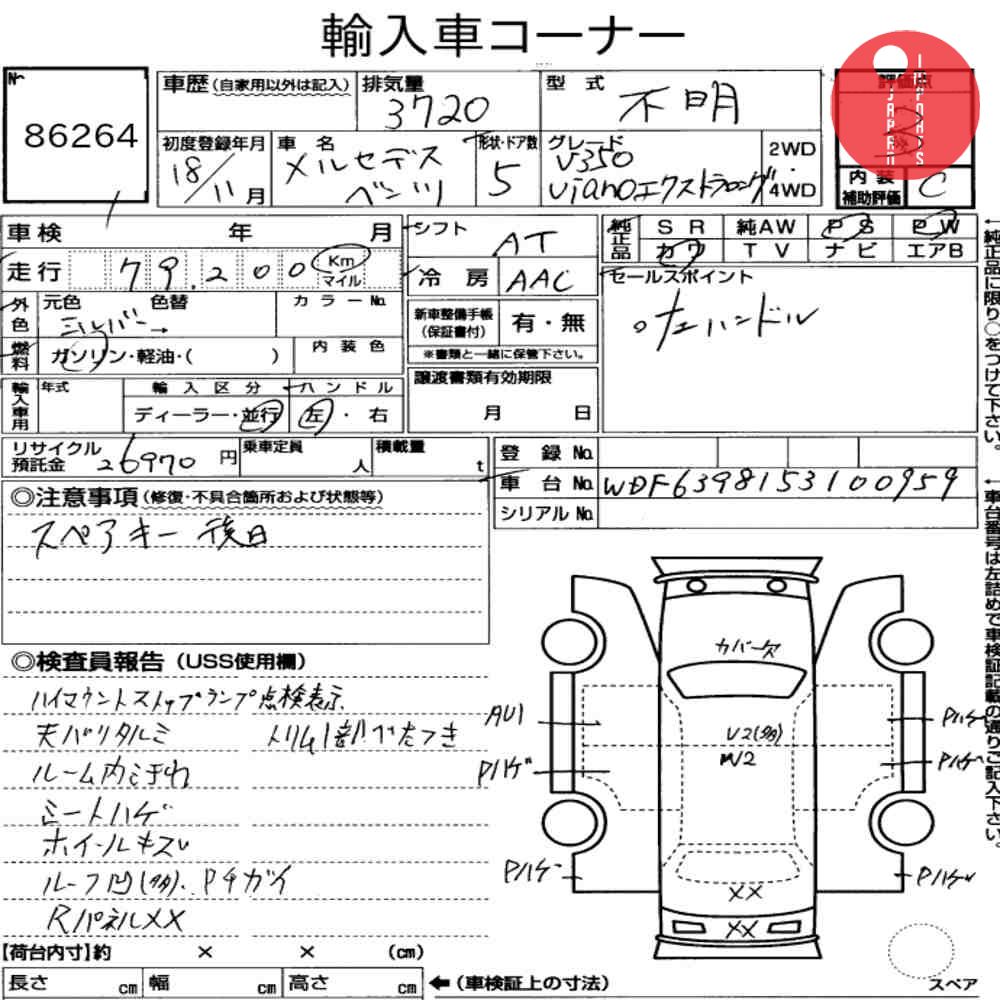 輸入車コーナー
№
86264
車歴(自家用以外は記入)
排気量
3720
型 式
不明
評価点
IMPORTS
JAPAN
初度登録年月
18/11月
車 名
メルセデス
ベンツ
形状・ドア数
5
グレード
V350
Vianoエクストラロング
2WD
4WD
内 装
補助評価
C
車検 年 月
シフト
AT
純正品
S R 純AW P S P W
カワ T V ナビ エアB
走行 79,200 Km
マイル
冷 房
AAC
セールスポイント
○左ハンドル
外色
元色 色替
シルバー→
カラーNo.
新車整備手帳
(保証書付)
有・無
※書類と一緒に保管下さい。
燃料
ガソリン・軽油・( )
内 装 色
輸入車用
年式
輸 入 区 分
ディーラー・並行
ハ ン ド ル
左・右
譲渡書類有効期限
月 日
リサイクル
預託金
26970円
乗車定員
人
積載量
t
登 録 No.
車 台 No. WDF6398153100959
シリアル No.
◎注意事項(修復・不具合箇所および状態等)
スペアキー後日
◎検査員報告(USS使用欄)
ハイマウントストップランプ点検表示
天バリタルミ トリム1部ガタつき
ルーム内ヨゴれ
シートハゲ
ホイールキズ
ルーフ凹(多)、Pチガイ
RパネルXX
カバー欠
AU1
U2(多)
W2
Pハゲ
Pハゲ
Pハゲ
Pハゲ
Pハゲ
XX
XX
【荷台内寸】約 × × (cm)
長さ cm 幅 cm 高さ cm
←(車検証上の寸法)
スペア
←純正品に限り○をつけて下さい。
←車台番号は左詰めで車検証記載の通りご記入下さい。